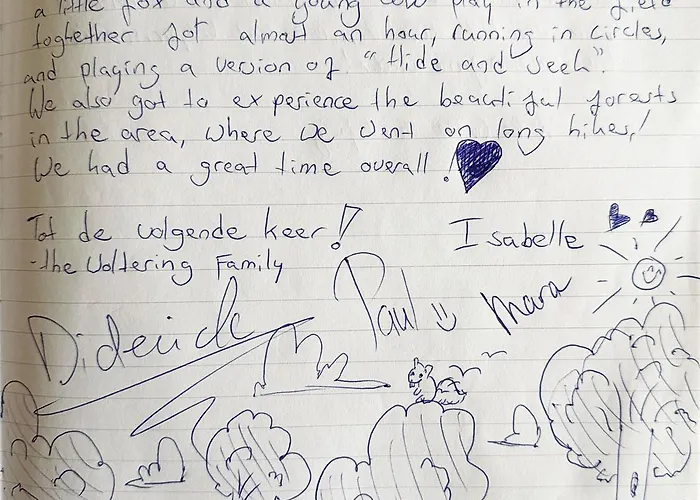 a little fox and a young cow play in the field
togtether for almost an hour, running in circles,
and playing a version of "Hide and Seek".
We also got to experience the beautiful forests
in the area, where we went on long hikes!
We had a great time overall!
Tot de volgende keer!
-the Woltering Family
Isabelle
Paul
Mara